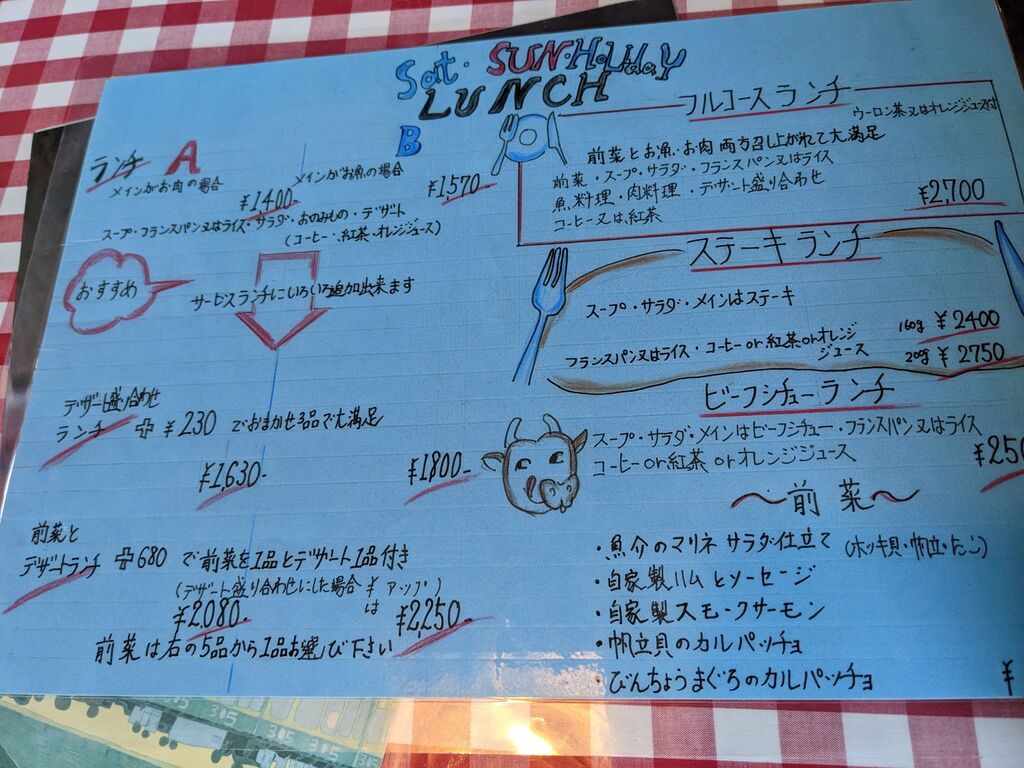 Sat. SUN・HoLiday
LUNCH
ランチ A
メインがお肉の場合
¥1400
B
メインがお魚の場合
¥1570
スープ・フランスパン又はライス・サラダ・おのみもの・デザート
(コーヒー・紅茶・オレンジジュース)
おすすめ
サービスランチにいろいろ追加出来ます
デザート盛り合わせ
ランチ + ¥230 でおまかせ3品で大満足
¥1,630-
¥1800-
前菜と
デザートランチ +680 で前菜を1品とデザート1品付き
(デザート盛り合わせにした場合は ¥ アップ)
¥2,080-
¥2,250-
前菜は右の5品から1品お選び下さい
フルコースランチ
ウーロン茶又はオレンジジュース付
前菜とお魚・お肉両方召し上がれて大満足
前菜・スープ・サラダ・フランスパン又はライス
魚料理・肉料理・デザート盛り合わせ
コーヒー又は紅茶
¥2,700
ステーキランチ
スープ・サラダ・メインはステーキ
160g ¥2400
フランスパン又はライス・コーヒーor紅茶orオレンジ
ジュース
200g ¥2750
ビーフシチューランチ
スープ・サラダ・メインはビーフシチュー・フランスパン又はライス
コーヒーor紅茶orオレンジジュース
¥250
～前菜～
・魚介のマリネ サラダ仕立て (ホッキ貝・帆立・たこ)
・自家製ハムとソーセージ
・自家製スモークサーモン
・帆立貝のカルパッチョ
・びんちょうまぐろのカルパッチョ
¥
305
305
305